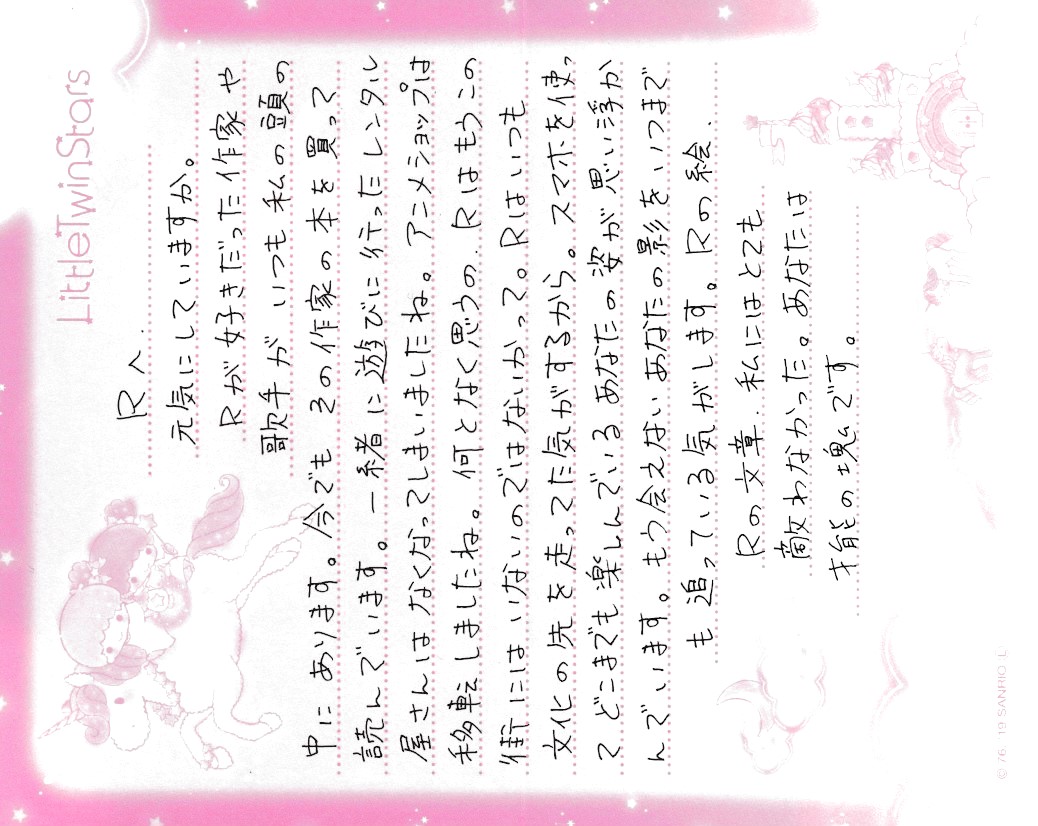 LittleTwinStars
Rへ.
元気にしていますか。
Rが好きだった作家や
歌手が いつも私の頭の
中に あります。今でも その作家の本を買って
読んでいます。一緒に遊びに行ったレンタル
屋さんは なくなってしまいましたね。アニメショップは
移転しましたね。何となく思うの. Rはもうこの
街にはいないのではないかって。Rはいつも
文化の先を走ってた気がするから。スマホを使っ
て どこまでも楽しんでいるあなたの姿が思い浮か
んでいます。もう会えないあなたの影をいつまで
も追っている気がします。Rの絵.
Rの文章. 私にはとても
敵わなかった。あなたは
才能の塊です。
© '76, '19 SANRIO L